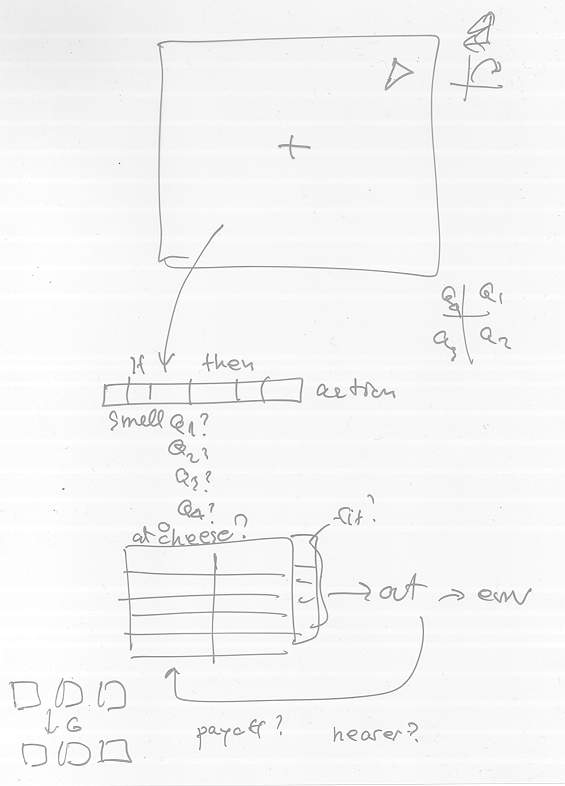 Q4 Q1
Q3 Q2
If then
action
Smell Q1?
Q2?
Q3?
Q4?
at cheese?
fit?
→ out → env
G
payoff? nearer?